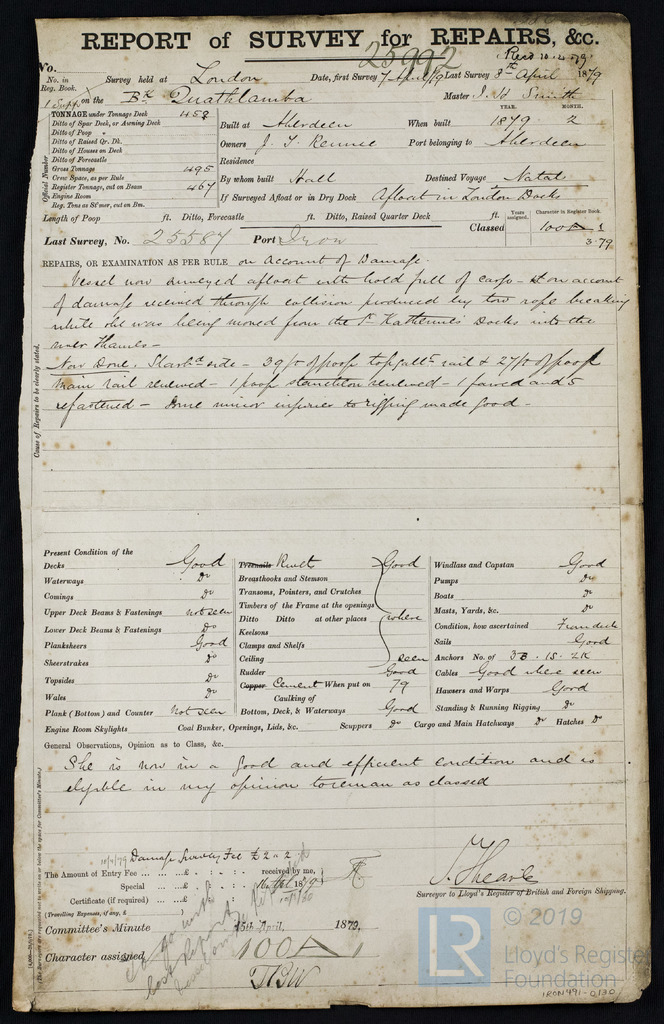 REPORT of SURVEY for REPAIRS, &c.
25992
Recd 10.4.79
No.
No. in Reg. Book.
Survey held at London Date, first Survey 7 April 79 Last Survey 8th April 1879
1 Supp on the Bk Quathlamba Master J. H. Smith
TONNAGE under Tonnage Deck 458
Ditto of Spar Deck, or Awning Deck
Ditto of Poop
Ditto of Raised Qr. Dk.
Ditto of Houses on Deck
Ditto of Forecastle
Gross Tonnage 495
Crew Space, as per Rule
Register Tonnage, cut on Beam 467
Engine Room
Reg. Tons as St'mer, cut on Bm.
Official Number
YEAR. MONTH.
Built at Aberdeen When built 1879 2
Owners J. T. Rennie Port belonging to Aberdeen
Residence
By whom built Hall Destined Voyage Natal
If Surveyed Afloat or in Dry Dock Afloat in London Docks
Length of Poop ft. Ditto, Forecastle ft. Ditto, Raised Quarter Deck ft.
Years assigned. Character in Register Book.
Last Survey, No. 25587 Port Iron Classed 100 A 1
3.79
REPAIRS, OR EXAMINATION AS PER RULE on Account of Damage.
Vessel now surveyed afloat with hold full of cargo - on account
of damage received through collision produced by tow rope breaking
while she was being moved from the St Katherine's Docks into the
river Thames -
Now Done. Starbd side - 39 ft of poop topgallt rail & 27 ft of poop
main rail renewed - 1 poop stanchion renewed - 1 faired and 5
refastened - Some minor injuries to rigging made good -
Cause of Repairs to be clearly stated.
Present Condition of the
Decks Good
Waterways Do
Comings Do
Upper Deck Beams & Fastenings not seen
Lower Deck Beams & Fastenings Do
Planksheers Good
Sheerstrakes Do
Topsides Do
Wales Do
Plank (Bottom) and Counter Not seen
Treenails Rivets Good
Breasthooks and Stemson
Transoms, Pointers, and Crutches
Timbers of the Frame at the openings
Ditto Ditto at other places where
Keelsons
Clamps and Shelfs
Ceiling seen
Rudder Good
Copper Cement When put on 79
Caulking of
Bottom, Deck, & Waterways Good
Windlass and Capstan Good
Pumps Do
Boats Do
Masts, Yards, &c. Do
Condition, how ascertained From deck
Sails Good
Anchors No. of 3B. 1S. 2K
Cables Good where seen
Hawsers and Warps Good
Standing & Running Rigging Do
Engine Room Skylights Coal Bunker, Openings, Lids, &c. Scuppers Do Cargo and Main Hatchways Do Hatches Do
General Observations, Opinion as to Class, &c.
She is now in a good and efficient condition and is
eligible in my opinion to remain as classed
10/4/79 Damage Survey Fee £2.2
The Amount of Entry Fee ... £ : : received by me,
Special ... £ : :
Certificate (if required) ... £ : :
(Travelling Expenses, if any, £
Surveyor to Lloyd's Register of British and Foreign Shipping.
Committee's Minute 15th April, 1879.
Character assigned 100 A 1
© 2019
LR
Lloyd's Register
Foundation
IRON491-0130